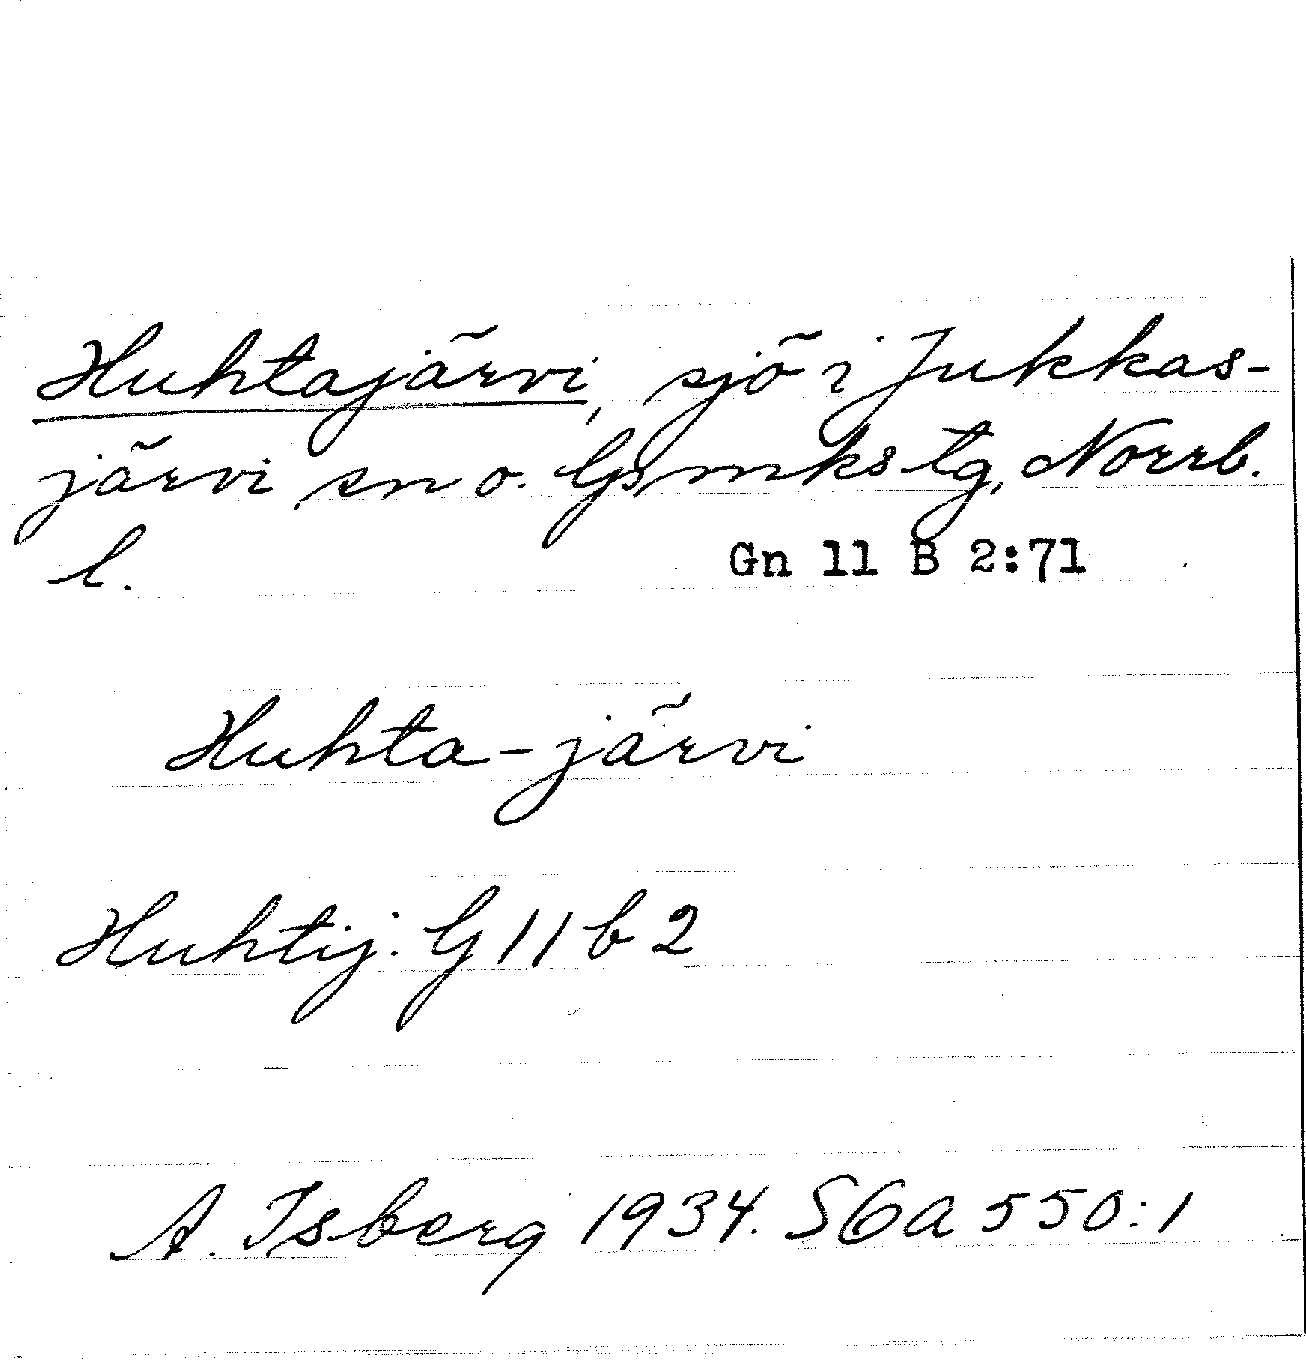 Huhtajärvi, sjö i Jukkas-
järvi sn o. Gs mks tg, Norrb.
l. Gn 11 B 2:71
Huhta-järvi
Huhtij. G 11 b 2
A. Isberg 1934. SGA 550:1